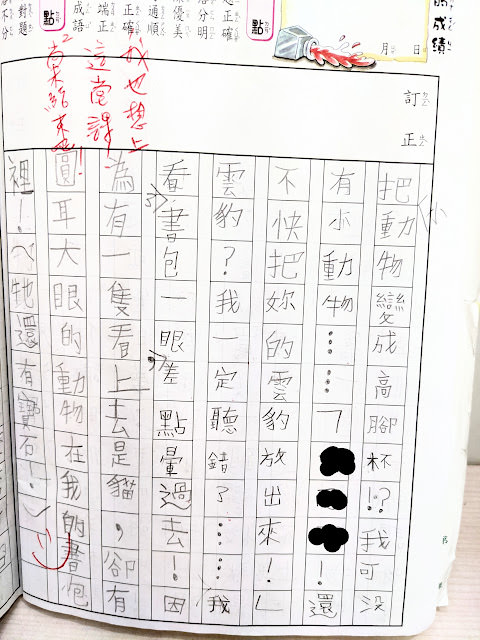 成績
月 日
點
點
訂
正
我也想上
這堂課
把動物變成高腳杯!?我可沒
小
有小動物……「
！還
不快把妳的雲豹放出來！」
雲豹？我一定聽錯了……我
看書包一眼差點暈過去！因
為有一隻看上去是貓，卻有
圓耳大眼的動物在我的書包
裡！ 牠還有寶石！